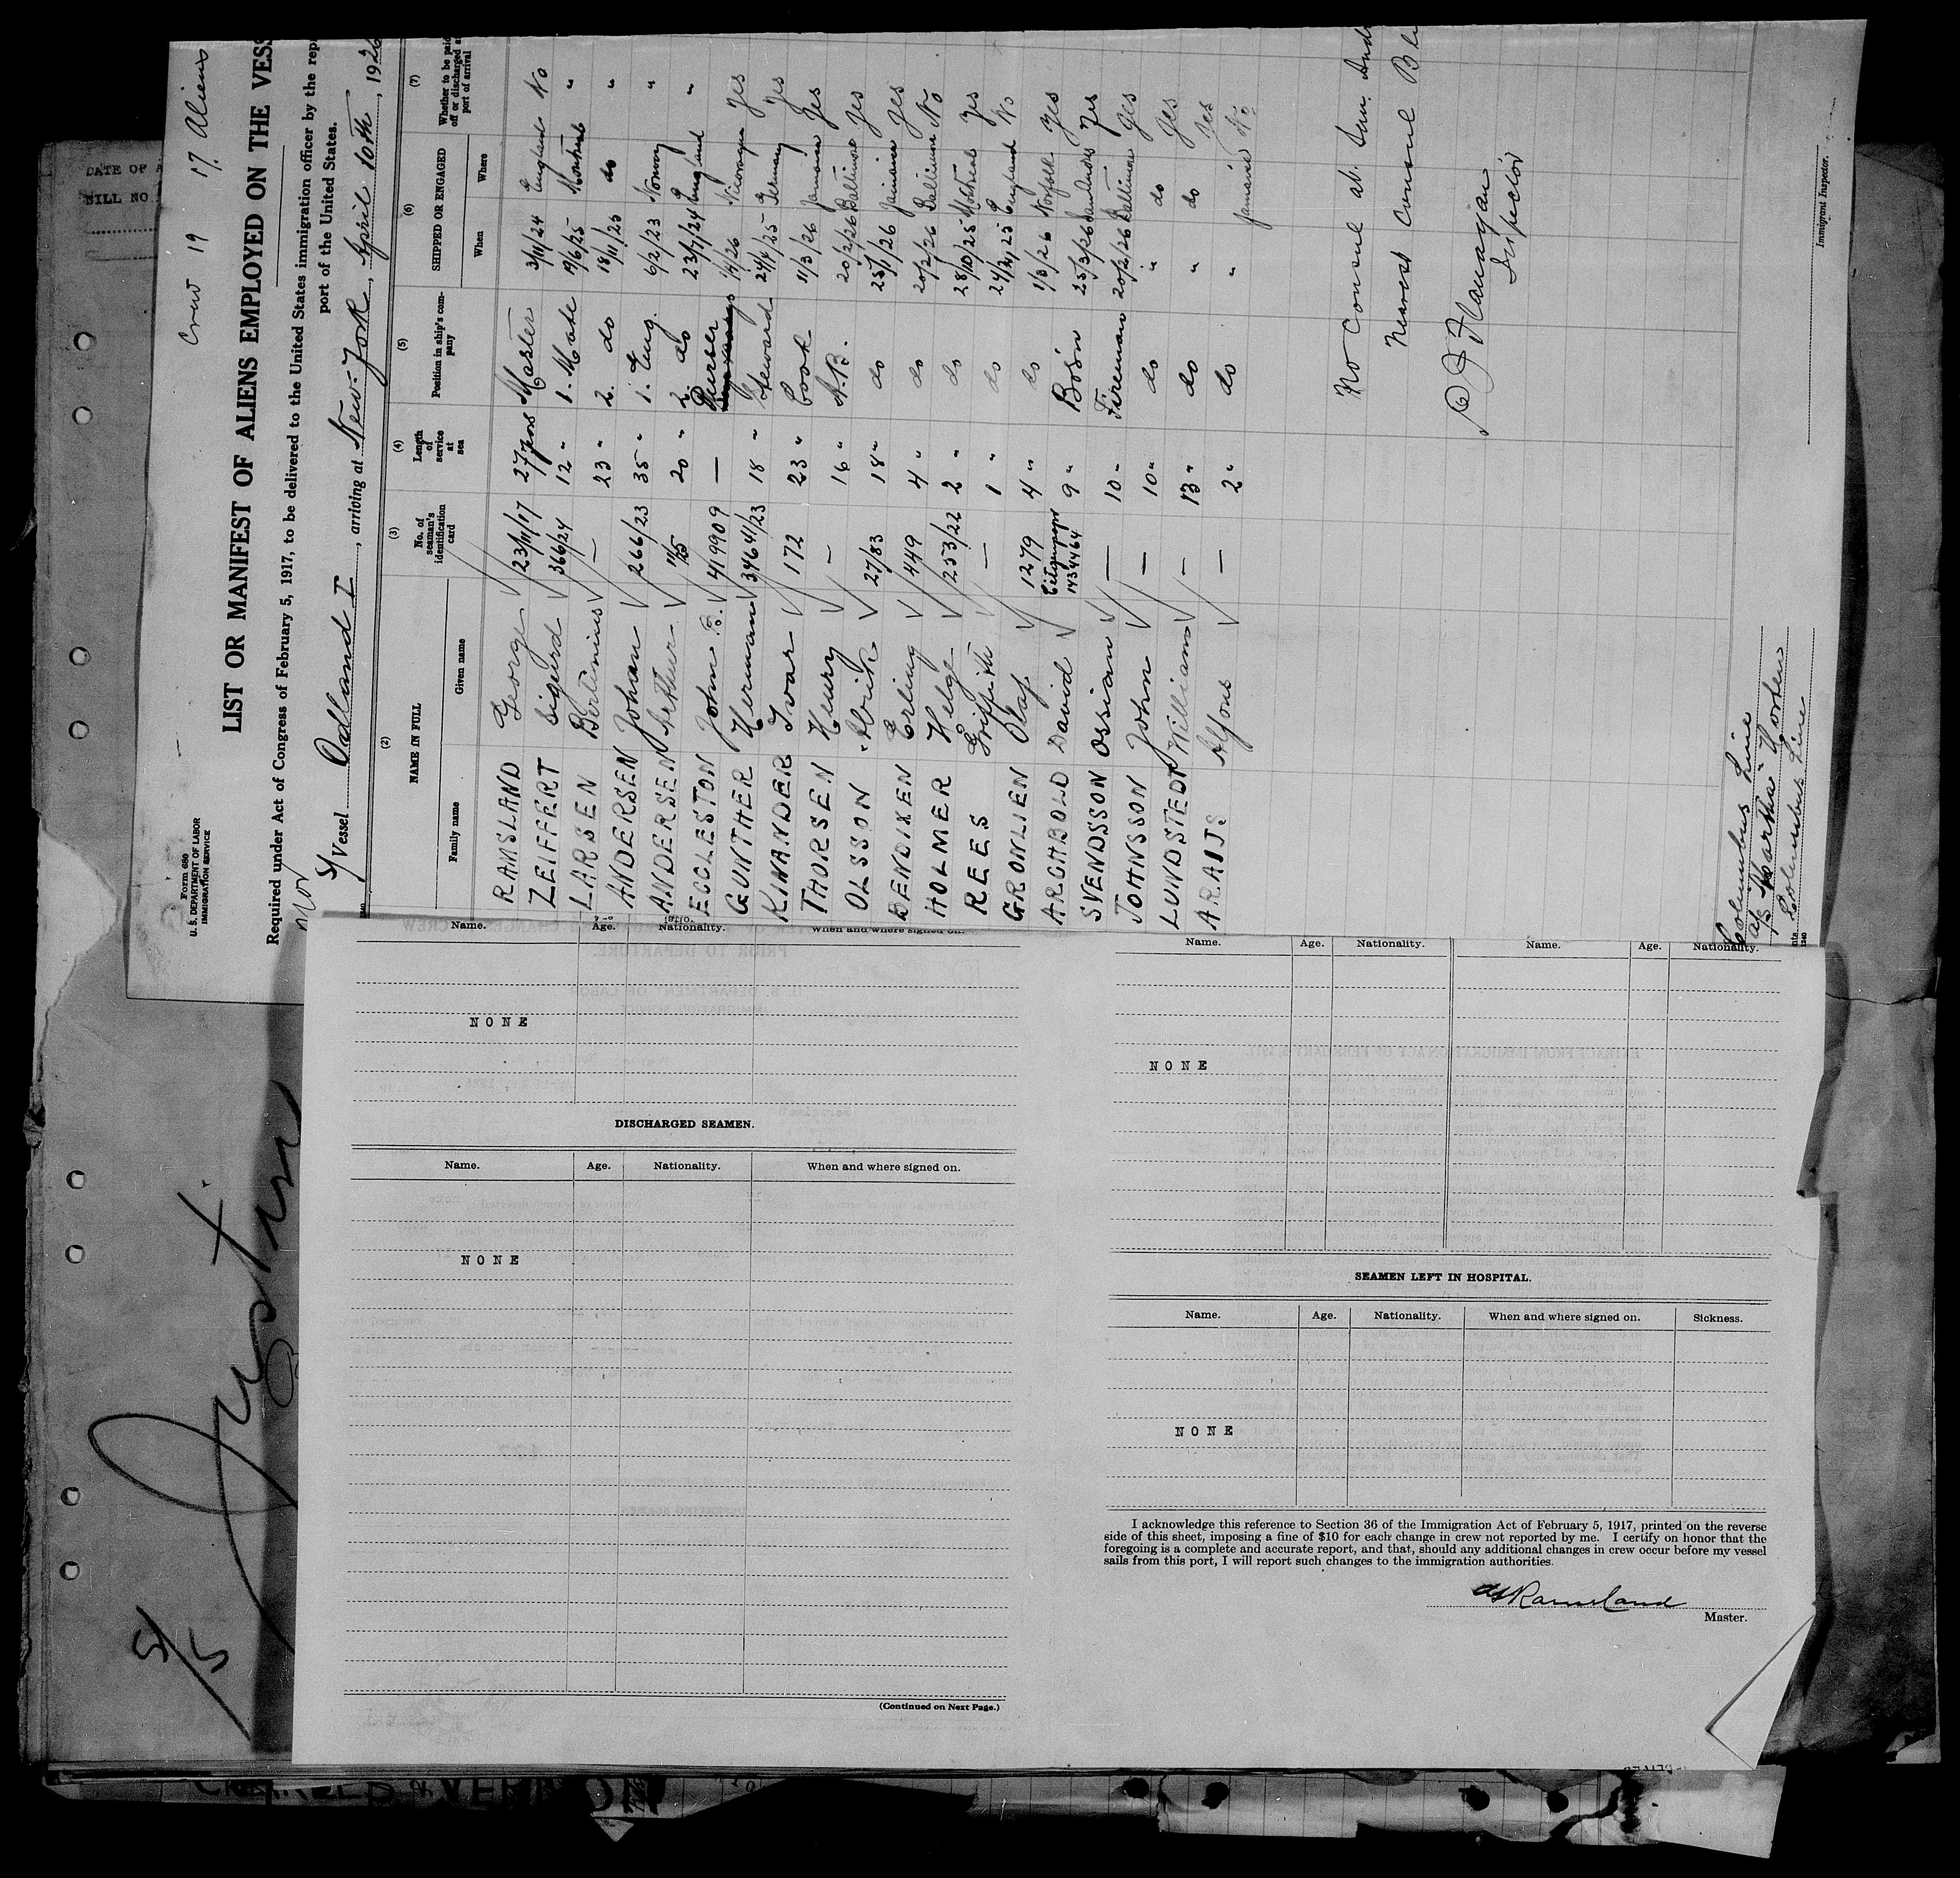 Crew 19 17 Aliens
Form 680
U. S. DEPARTMENT OF LABOR
IMMIGRATION SERVICE
LIST OR MANIFEST OF ALIENS EMPLOYED ON THE VESS
Required under Act of Congress of February 5, 1917, to be delivered to the United States immigration officer by the rep
port of the United States.
Nor
S/ Vessel Odland I, arriving at New-York, April 10th, 1926
(2) (3) (4) (5) (6) (7)
NAME IN FULL No. of seaman's identification card Length of service at sea Position in ship's company SHIPPED OR ENGAGED Whether to be paid off or discharged a port of arrival
Family name Given name When Where
RAMSLAND George 23/11/17 27 yrs Master 3/11/24 England No
ZEIFFERT Sigurd 366/24 12 " 1. Mate 19/6/25 Montreal "
LARSEN Bertinius — 23 " 2. do 18/11/25 do "
ANDERSEN Johan 266/23 35 " 1. Eng. 6/2/23 Norway "
ANDERSEN Arthur 20 " 2. do 23/7/24 England "
ECCLESTON John B. 419909 — Purser Yes
GUNTHER Herman 3464/23 18 " Steward 24/4/25 Germany Yes
KINANDER Ivar 172 23 " Cook 11/3/26 Jamaica Yes
THORSEN Henry — 16 " A.B. 20/2/26 Baltimore Yes
OLSSON 27/83 18 " do 25/1/26 Jamaica Yes
BENDIXEN Erling 449 4 " do 20/2/26 Baltimore No
HOLMER Helge 253/22 2 " do 28/10/25 Montreal Yes
REES Griffith — 1 " do 24/2/25 England No
GRONLIEN Olaf 1279 4 " do 1/3/26 Norfolk Yes
ARCHBOLD David 1434464 9 " Bos'n 25/3/26 Yes
SVENDSSON Ossian — 10 " Fireman 20/2/26 Baltimore Yes
JOHNSSON John — 10 " do " do Yes
LUNDSTEDT William — 13 " do " do Yes
ARAIJS Alfons — 2 " do " Jamaica No
No Consul at San. And
Nearest Consul
P J Flanagan
Inspector
Immigrant Inspector.
Columbus Line
a/s "Martha"
Columbus Line
DATE OF A
BILL NO.
Name. Age. Nationality. When and where signed on.
NONE
DISCHARGED SEAMEN.
Name. Age. Nationality. When and where signed on.
NONE
(Continued on Next Page.)
Name. Age. Nationality. Name. Age. Nationality.
NONE
SEAMEN LEFT IN HOSPITAL.
Name. Age. Nationality. When and where signed on. Sickness.
NONE
I acknowledge this reference to Section 36 of the Immigration Act of February 5, 1917, printed on the reverse
side of this sheet, imposing a fine of $10 for each change in crew not reported by me. I certify on honor that the
foregoing is a complete and accurate report, and that, should any additional changes in crew occur before my vessel
sails from this port, I will report such changes to the immigration authorities.
Ramsland
Master.
5/5